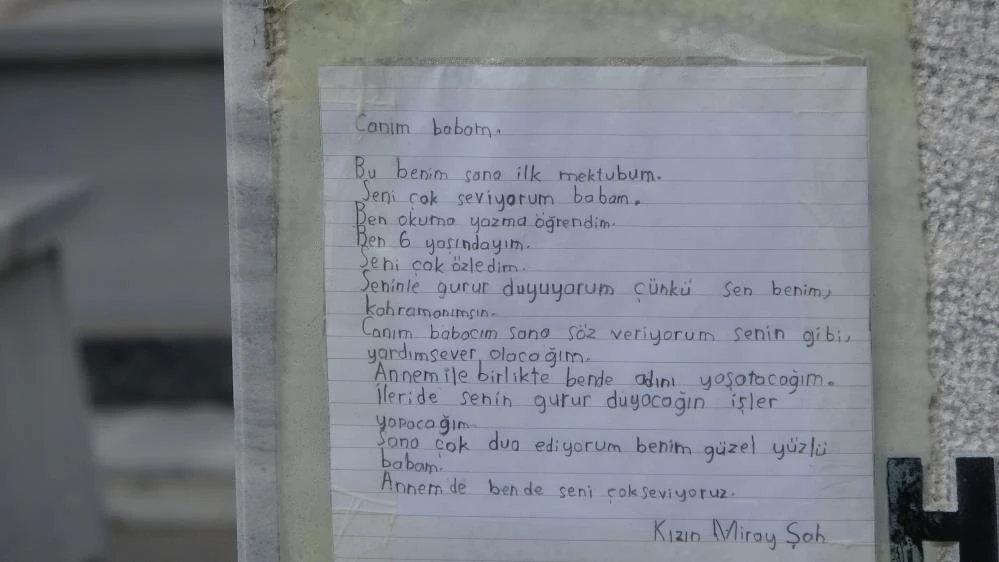 Canım babam.
Bu benim sana ilk mektubum.
Seni çok seviyorum babam.
Ben okuma yazma öğrendim.
Ben 6 yaşındayım.
Seni çok özledim.
Seninle gurur duyuyorum çünkü sen benim,
kahramanımsın.
Canım babacım sana söz veriyorum senin gibi,
yardımsever olacağım.
Annem ile birlikte bende adını yaşatacağım.
İleride senin gurur duyacağın işler
yapacağım.
Sana çok dua ediyorum benim güzel yüzlü
babam.
Annem de ben de seni çok seviyoruz.
Kızın Miray Şah
H